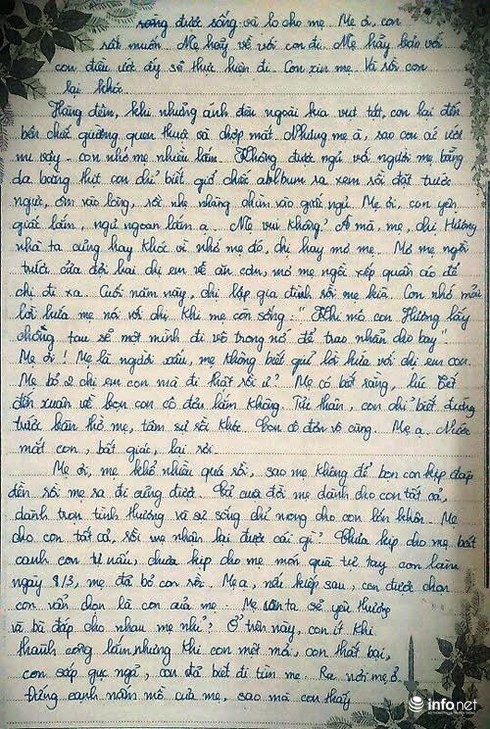 song được sống và lo cho mẹ. Mẹ ơi, con
rất muốn. Mẹ hãy về với con đi. Mẹ hãy bảo với
con điều ước ấy sẽ thực hiện đi. Con xin mẹ. Và rồi con
lại khóc.
Hàng đêm, khi những ánh đèn ngoài kia vụt tắt, con lại đến
bên chiếc giường quen thuộc và chợp mắt. Nhưng mẹ à, sao con cứ ướt
mi vậy. con nhớ mẹ nhiều lắm. Không được ngủ với người mẹ bằng
da bằng thịt con chỉ biết giở chiếc abllbum ra xem rồi đặt trước
ngực, ôm vào lòng, rồi nhẹ nhàng chìm vào giấc ngủ. Mẹ ơi, con yên
giấc lắm, ngủ ngoan lắm ạ. Mẹ vui không? À mà, mẹ, chị Hương
nhà ta cũng hay khóc vì nhớ mẹ đó, chị hay mơ mẹ. Mơ mẹ ngồi
trước cửa đợi hai chị em về ăn cơm, mơ mẹ ngồi xếp quần áo để
chị đi xa. Cuối năm này, chị lập gia đình rồi mẹ kìa. Con nhớ mãi
lời hứa mẹ nói với chị khi mẹ còn sống: "Khi mô con Hương lấy
chồng tau sẽ một mình đi vô trong nớ để trao nhẫn cho bay".
Mẹ ơi! Mẹ là người xấu, mẹ không biết giữ lời hứa với chị em con.
Mẹ bỏ 2 chị em con mà đi thật rồi ư? Mẹ có biết rằng, lúc Tết
đến xuân về bọn con cô đơn lắm không. Từ thân, con chỉ biết đứng
trước bàn thờ mẹ, tâm sự rồi khóc. Con cô đơn vô cùng. Mẹ ạ. Nước
mắt con, bất giác, lại rơi.
Mẹ ơi, mẹ khổ nhiều quá rồi, sao mẹ không để bọn con kịp đáp
đền rồi mẹ ra đi cũng được. Cả cuộc đời mẹ dành cho con tất cả,
dành trọn tình thương và sự sống chỉ mong cho con lớn khôn. Mẹ
cho con tất cả, rồi mẹ nhận lại được cái gì? Chưa kịp cho mẹ bát
canh con tự nấu, chưa kịp cho mẹ món quà tự tay con làm
ngày 8/3, mẹ đã bỏ con rồi. Mẹ ạ, nếu kiếp sau, con được chọn
con vẫn chọn là con của mẹ. Mẹ con ta sẽ yêu thương
và bù đắp cho nhau mẹ nhỉ? Ở trên này, con ít khi
thành công lắm, nhưng khi con mệt mỏi, con thất bại,
con sắp gục ngã, con đã biết đi tìm mẹ. Ra với mẹ ở
Đứng cạnh nấm mồ của mẹ, sao mà con thấy
infonet